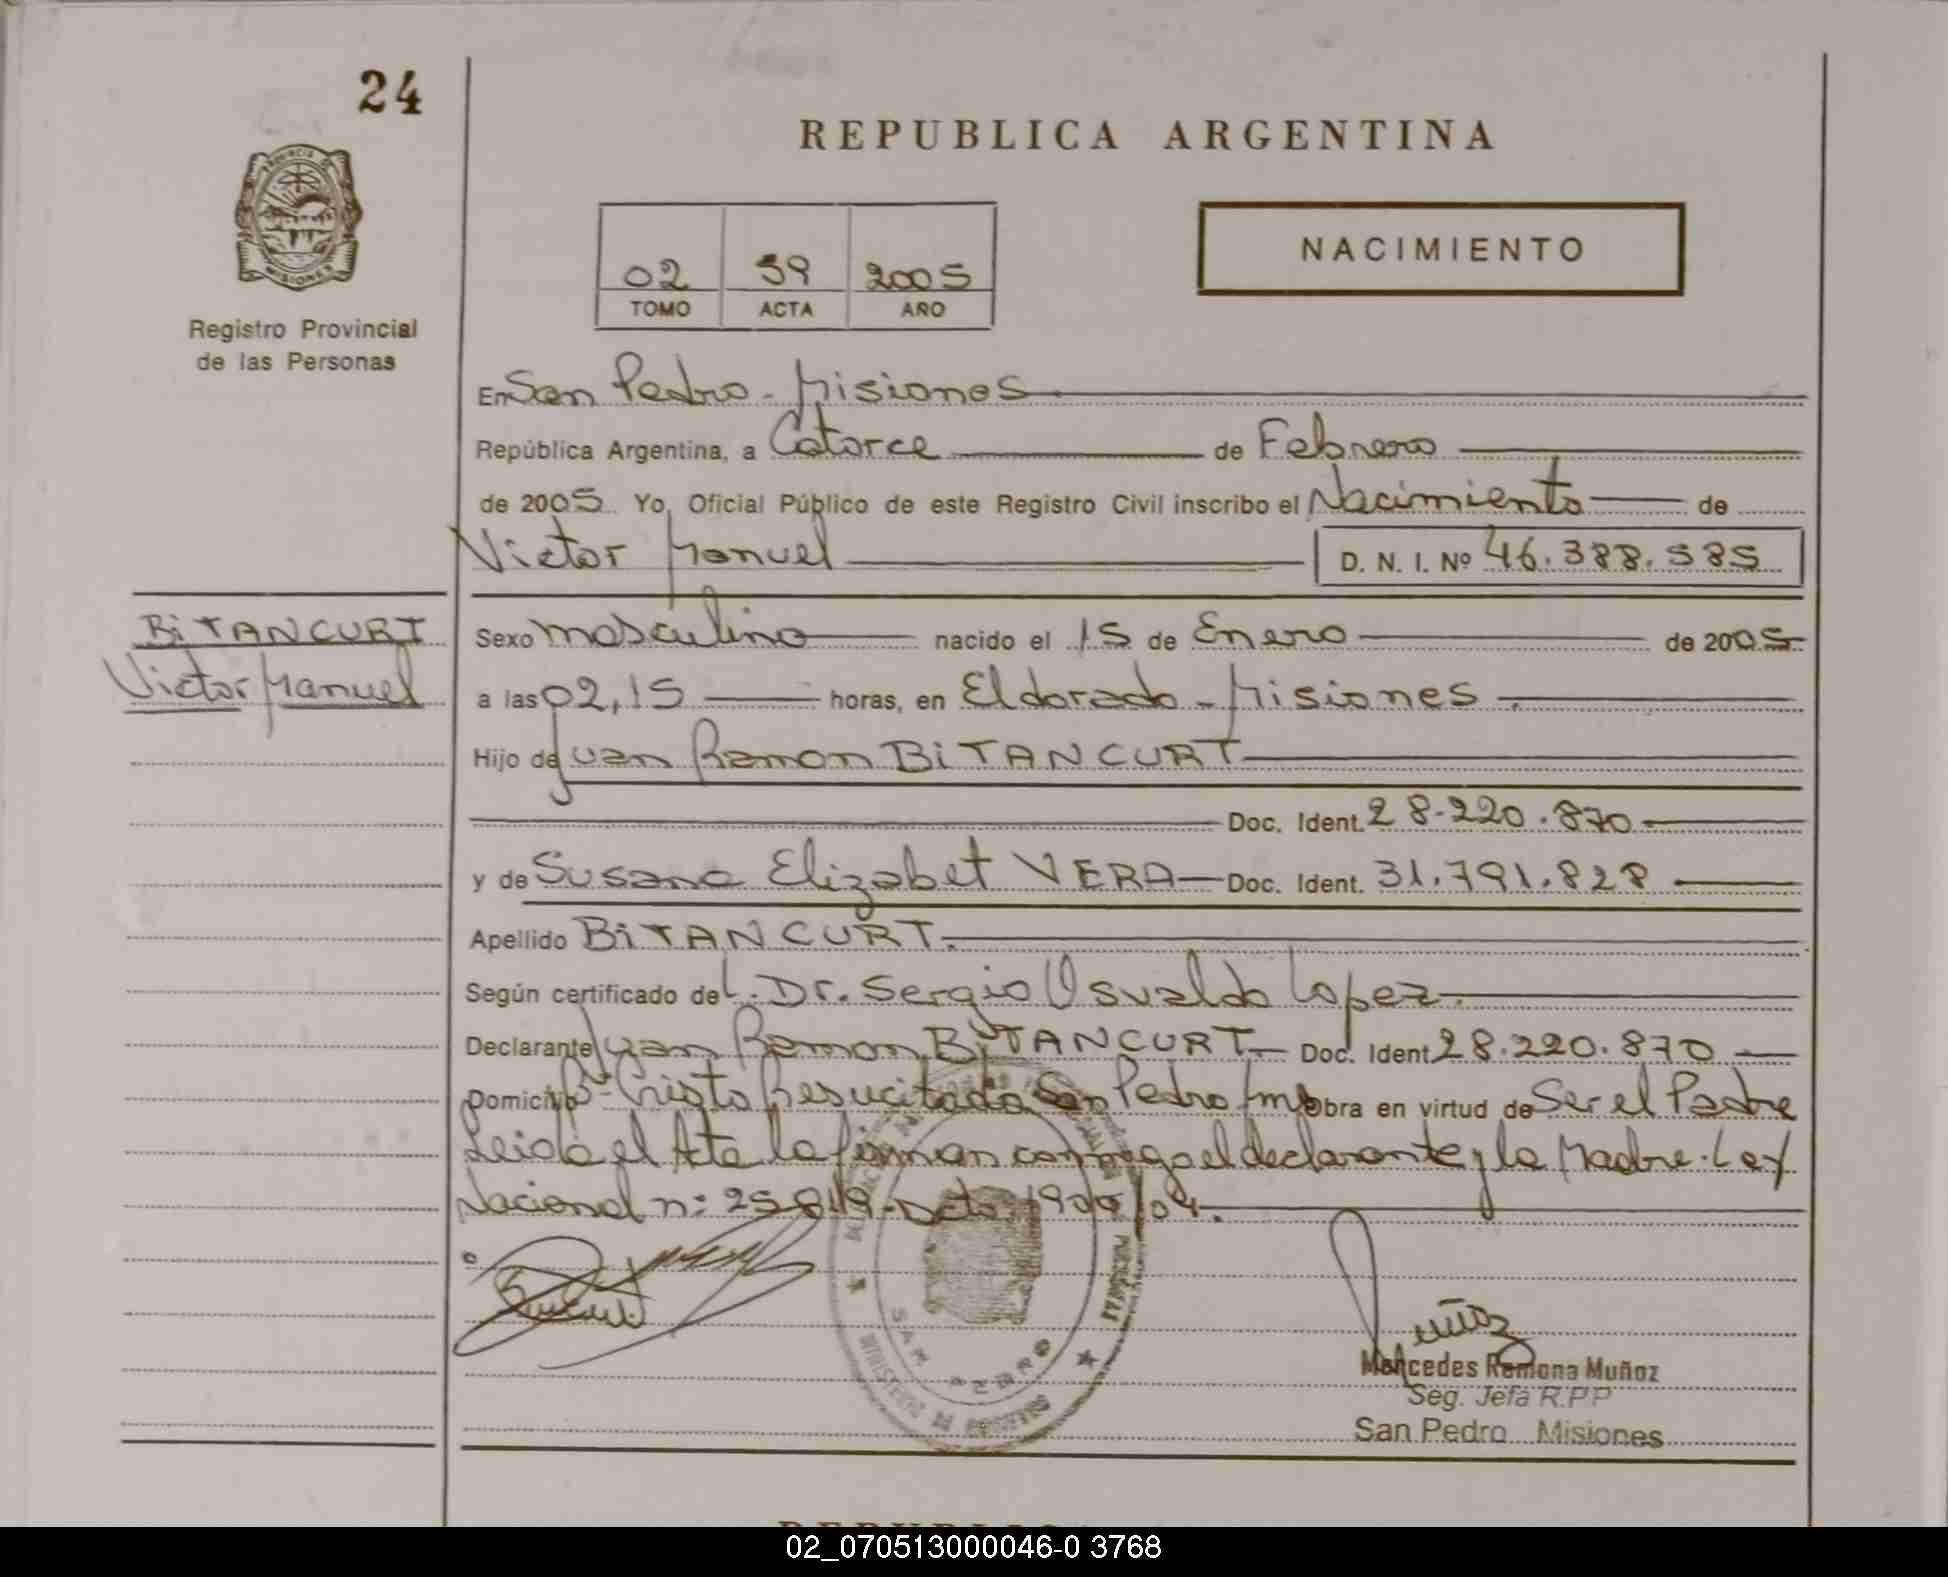 24
REPUBLICA ARGENTINA
PROVINCIA DE
MISIONES
Registro Provincial
de las Personas
02 39 2005
TOMO ACTA AÑO
NACIMIENTO
En San Pedro - Misiones
República Argentina, a Catorce de Febrero
de 2005 Yo, Oficial Público de este Registro Civil inscribo el Nacimiento de
Victor Manuel D. N. I. Nº 46.388.585
BiTANCURT
Victor Manuel
Sexo masculino nacido el 15 de Enero de 2005
a las 02,15 horas, en Eldorado - Misiones.
Hijo de Juan Ramon BiTANCURT
Doc. Ident. 28.220.870
y de Susana Elizabet VERA Doc. Ident. 31.791.828
Apellido BiTANCURT.
Según certificado del. Dr. Sergio Osvaldo Lopez.
Declarante Juan Ramon BiTANCURT Doc. Ident 28.220.870
Domicilio Bº Cristo Resucitado San Pedro Mnes obra en virtud de Ser el Padre
Leida el Acta la firman conmigo el declarante y la Madre. Ley
Nacional n: 25819 - Dcto 1909/04.
MINISTERIO DE GOBIERNO
SAN PEDRO
Muñoz
Mercedes Ramona Muñoz
Seg. Jefa R.P.P
San Pedro Misiones
02_070513000046-0 3768